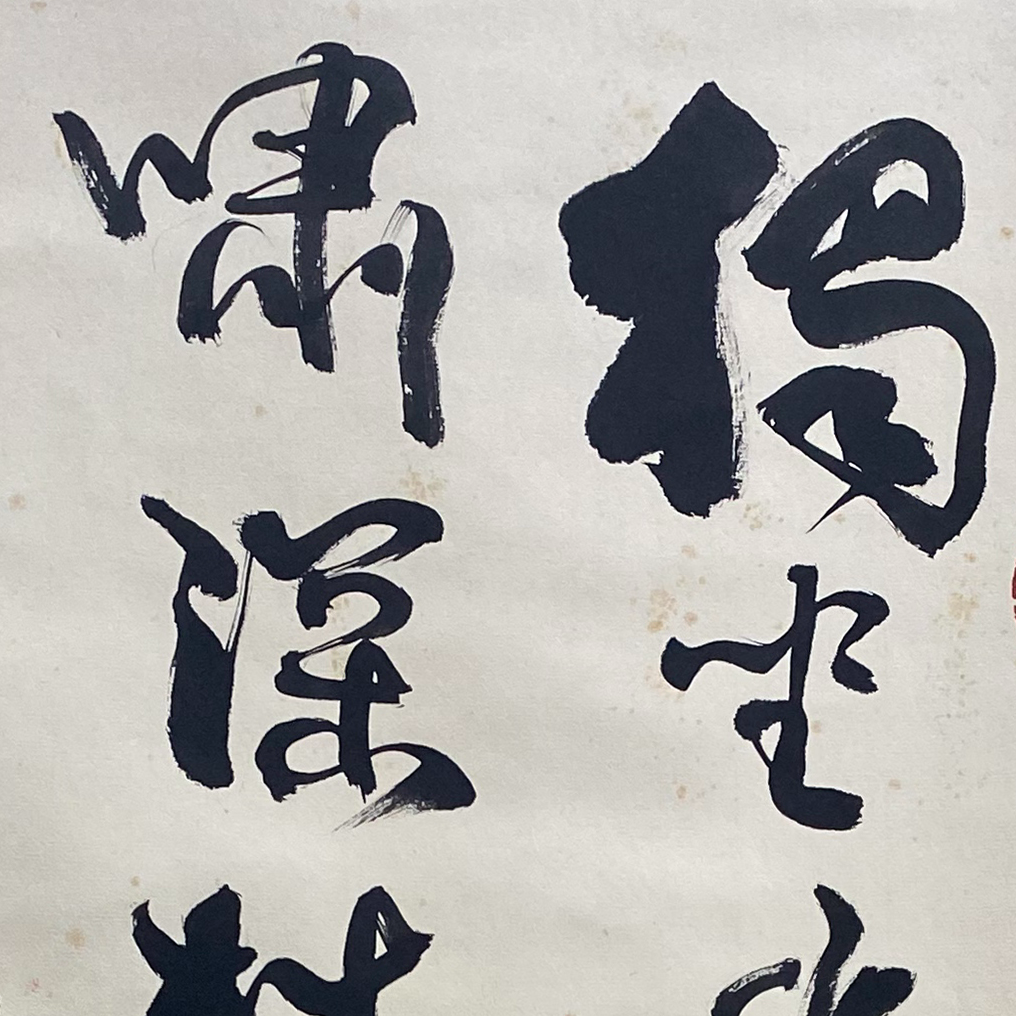 獨坐
嘯深